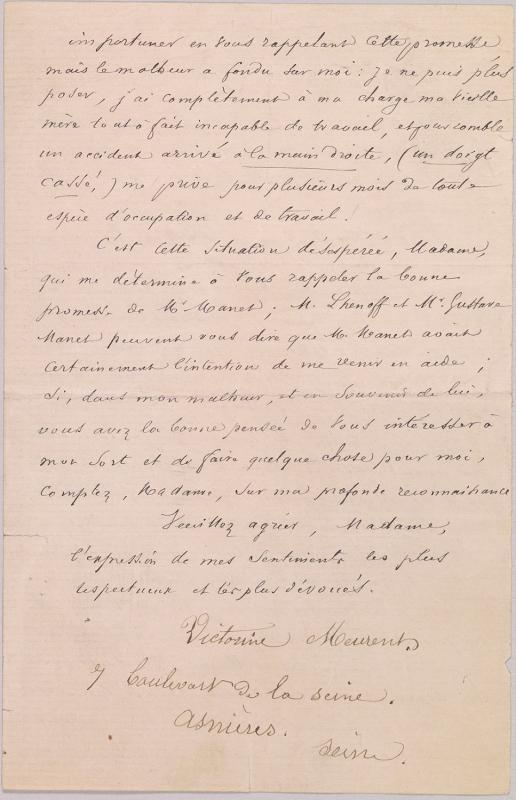 importuner en vous rappelant cette promesse
mais le malheur a fondu sur moi : je ne puis plus
poser, j'ai complètement à ma charge ma vieille
mère tout à fait incapable de travail, et pour comble
un accident arrivé à la main droite, (un doigt
cassé,) me prive pour plusieurs mois de toute
espèce d'occupation et de travail !
C'est cette situation désespérée, Madame,
qui me détermine à vous rappeler la bonne
promesse de Mr Manet ; M. Lhenoff et Mr. Gustave
Manet peuvent vous dire que M. Manet avait
certainement l'intention de me venir en aide ;
Si, dans mon malheur, et en souvenir de lui,
vous avez la bonne pensée de vous intéresser à
mon sort et de faire quelque chose pour moi,
Comptez, Madame, sur ma profonde reconnaissance
Veuillez agréer, Madame,
l'expression de mes sentiments les plus
respectueux et les plus dévoués.
Victorine Meurent.
7 Boulevart de la Seine.
Asnières.
Seine.